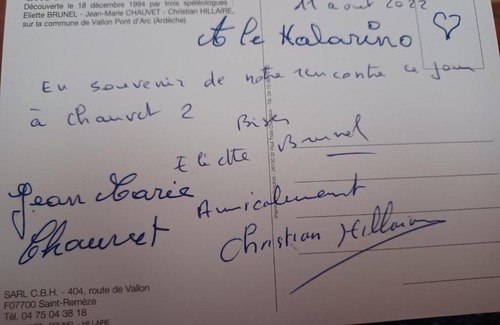 Découverte le 18 décembre 1994 par trois spéléologues :
Eliette BRUNEL - Jean-Marie CHAUVET - Christian HILLAIRE,
sur la commune de Vallon Pont d'Arc (Ardèche).
11 août 2022
A le Kalarino
En souvenir de notre rencontre ce jour
à Chauvet 2
Bises
Eliette Brunel
Jean Marie
Chauvet
Amicalement
Christian Hillaire
SARL C.B.H. - 404, route de Vallon
F07700 Saint-Remèze
Tél. 04 75 04 38 18
BRUNEL - HILLAIRE